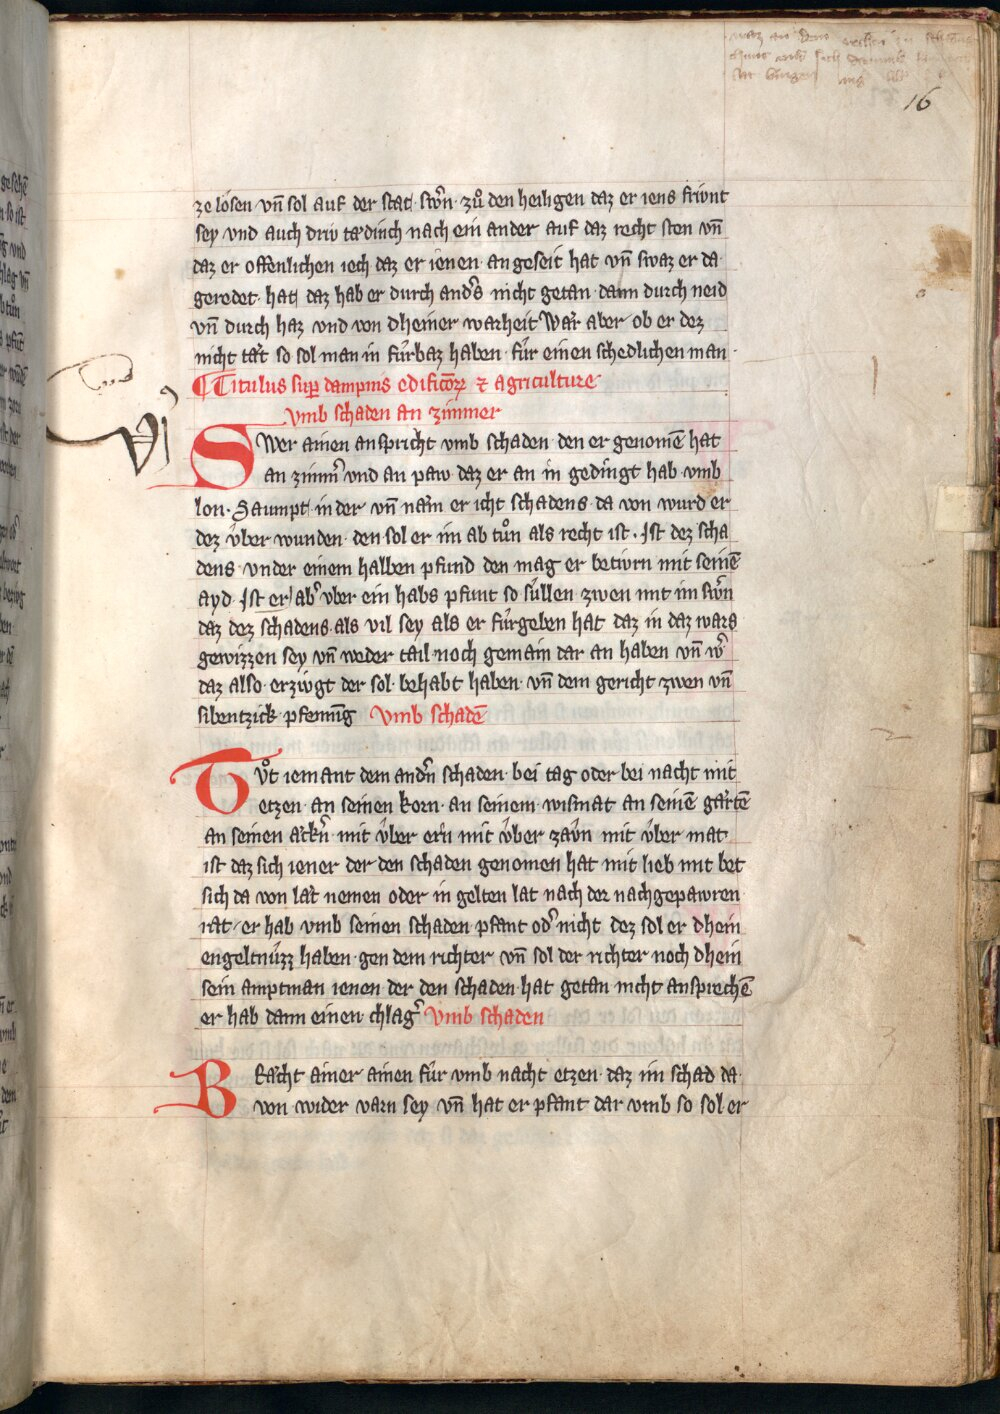 16
ze lösen vn̄ sol auf der stat swͤrn zů den heiligen daz er iens frivnt
sey vnd auch driv taͤdinch nach ein ander auf daz recht sten vn̄
daz er offenlichen iech daz er ienen angeseit hat vn̄ swaz er da
geredet hat daz hab er durch anders nicht getan dann durch neid
vn̄ durch haz vnd von dheiner warheit Waͤr aber ob er dez
nicht taͤt so sol man in fu̍rbaz haben fu̍r einen schedlichen man
¶ Titulus sup̄ dampnis edificōꝝ ⁊ agriculture
vmb schaden an zimmer
VJ
SWer ainen anspricht vmb schaden den er genomē hat
an zimm̄ vnd an paw daz er an in gedingt hab vmb
lon. Saumpt in der vn̄ naͤm er icht schadens da von wurd er
dez v̍ber wunden den sol er im ab tůn als recht ist. Ist dez scha
dens vnder einem halben pfund den mag er betivrn mit seinē
ayd. Ist er ab̕ vber ein habs pfunt so su̍llen zwen mit im swͤrn
daz dez schadens als vil sey als er fu̍rgeben hat daz in daz wars
gewizzen sey vn̄ weder tail noch gemain dar an haben vn̄ w̕
daz also erzivgt der sol behabt haben vn̄ dem gericht zwen vn̄
sibentzick pfennīg vmb schadē
Tůt iemant dem andn̄ schaden bei tag oder bei nacht mit
etzen an seinen korn an seinem wismat an seinē gaͤrtē
an seinen aͤckn̄ mit v̍ber ern mit v̍ber zaͤvn mit v̍ber mat
ist daz sich iener der den schaden genomen hat mit lieb mit bet
sich da von laͤt nemen oder in gelten lat nach der nachgepawren
rat er hab vmb seinen schaden pfant od̕ nicht dez sol er dhein
engeltnu̍zz haben gen dem richter vn̄ sol der richter noch dhein
sein amptman ienen der den schaden hat getan nicht ansprechē
er hab dann einen chlag̕ vmb schaden
BRaͤcht ainer ainen fu̍r vmb nacht etzen daz im schad da
von wider varn sey vn̄ hat er pfant dar vmb so sol er